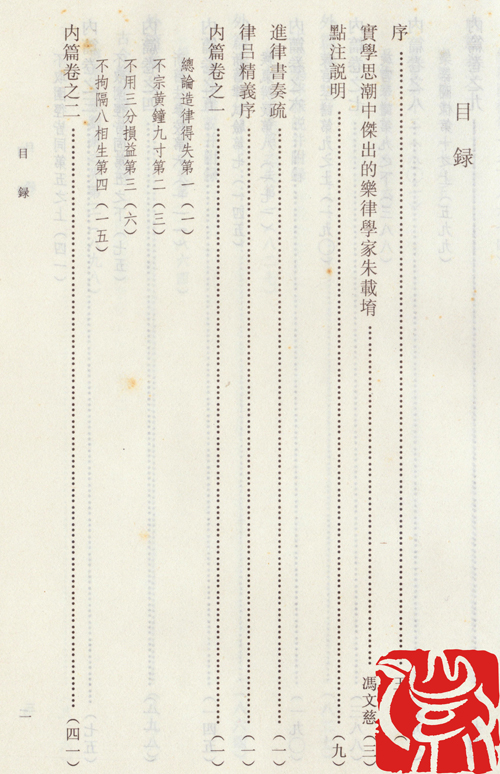 目録
序
實學思潮中傑出的樂律學家朱載堉 馮文慈（三）
點注説明（九）
進律書奏疏（一）
律吕精義序（一）
内篇卷之一（一）
總論造律得失第一（一）
不宗黄鐘九寸第二（三）
不用三分損益第三（六）
不拘隔八相生第四（一五）
内篇卷之二（四一）
目録
一